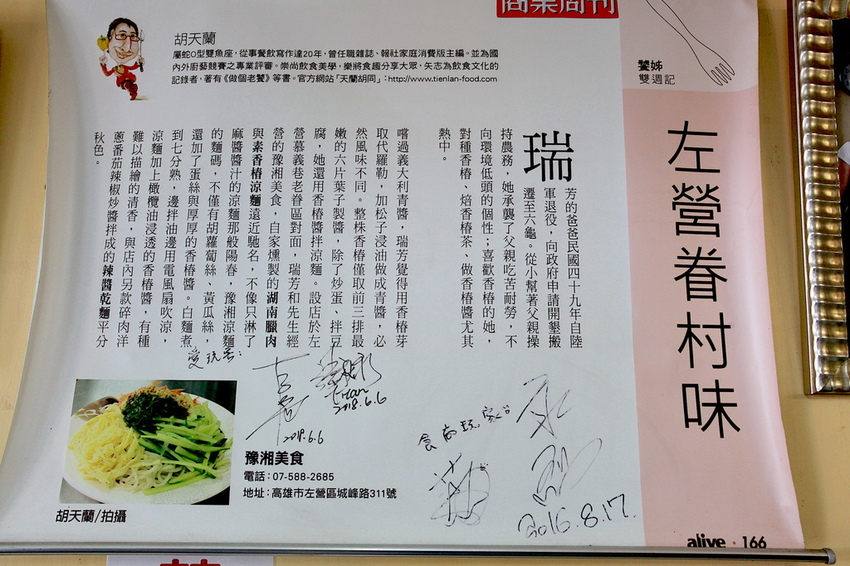 商業周刊
饕姊
雙週記
左營眷村味
胡天蘭
屬蛇O型雙魚座，從事餐飲寫作達20年，曾任職雜誌、報社家庭消費版主編。並為國
內外廚藝競賽之專業評審。崇尚飲食美學，樂將食趣分享大眾，矢志為飲食文化的
記錄者，著有《做個老饕》等書。官方網站「天蘭胡同」：http://www.tienlan-food.com
瑞
芳的爸爸民國四十九年自陸
軍退役，向政府申請開墾搬
遷至六龜。從小幫著父親操
持農務，她承襲了父親吃苦耐勞，不
向環境低頭的個性；喜歡香椿的她，
對種香椿、焙香椿茶、做香椿醬尤其
熱中。
嚐過義大利青醬，瑞芳覺得用香椿芽
取代羅勒，加松子浸油做成青醬，必
然風味不同。整株香椿僅取前三排最
嫩的六片葉子製醬，除了炒蛋、拌豆
腐，她還用香椿醬拌涼麵。設店於左
營慕義巷老眷區對面，瑞芳和先生經
營的豫湘美食，自家燻製的湖南臘肉
與素香椿涼麵遠近馳名，不像只淋了
麻醬醬汁的涼麵那般陽春，豫湘涼麵
的麵碼，不僅有胡蘿蔔絲、黃瓜絲，
還加了蛋絲與厚厚的香椿醬。白麵煮
到七分熟，邊拌油邊用電風扇吹涼，
涼麵加上橄欖油浸透的香椿醬，有種
難以描繪的清香，與店內另款碎肉洋
蔥番茄辣椒炒醬拌成的辣醬乾麵平分
秋色。
愛玩客：
Titan
2018.6.6
2018.6.6
食尚玩家
2016.8.17.
豫湘美食
電話：07-588-2685
地址：高雄市左營區城峰路311號
胡天蘭/拍攝
alive · 166